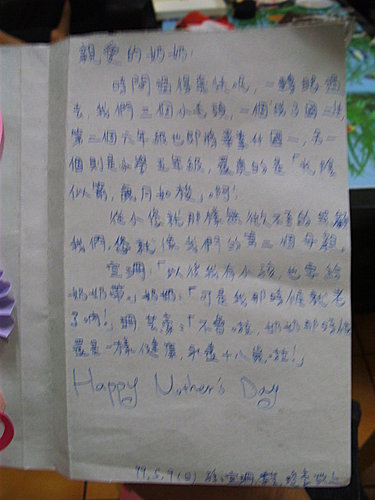 親愛的奶奶:
時間過得真快呀,一轉眼過
去,我們三個小毛頭,一個
第二個六年級也即將畢業升國一,另一
個則是小學五年級,還真的是「光陰
似箭,歲月如梭」啊!
從小您就那樣無微不至的照顧
我們,您就像我們的第二個母親。
宣珊:「以後我有小孩,也要給
奶奶帶。」奶奶:「可是我那時候就老
了啊!」珊笑著:「不會啦,奶奶那時候
還是一樣健康 身體十八歲啦!」
Happy Mother's Day
99.5.9(日)